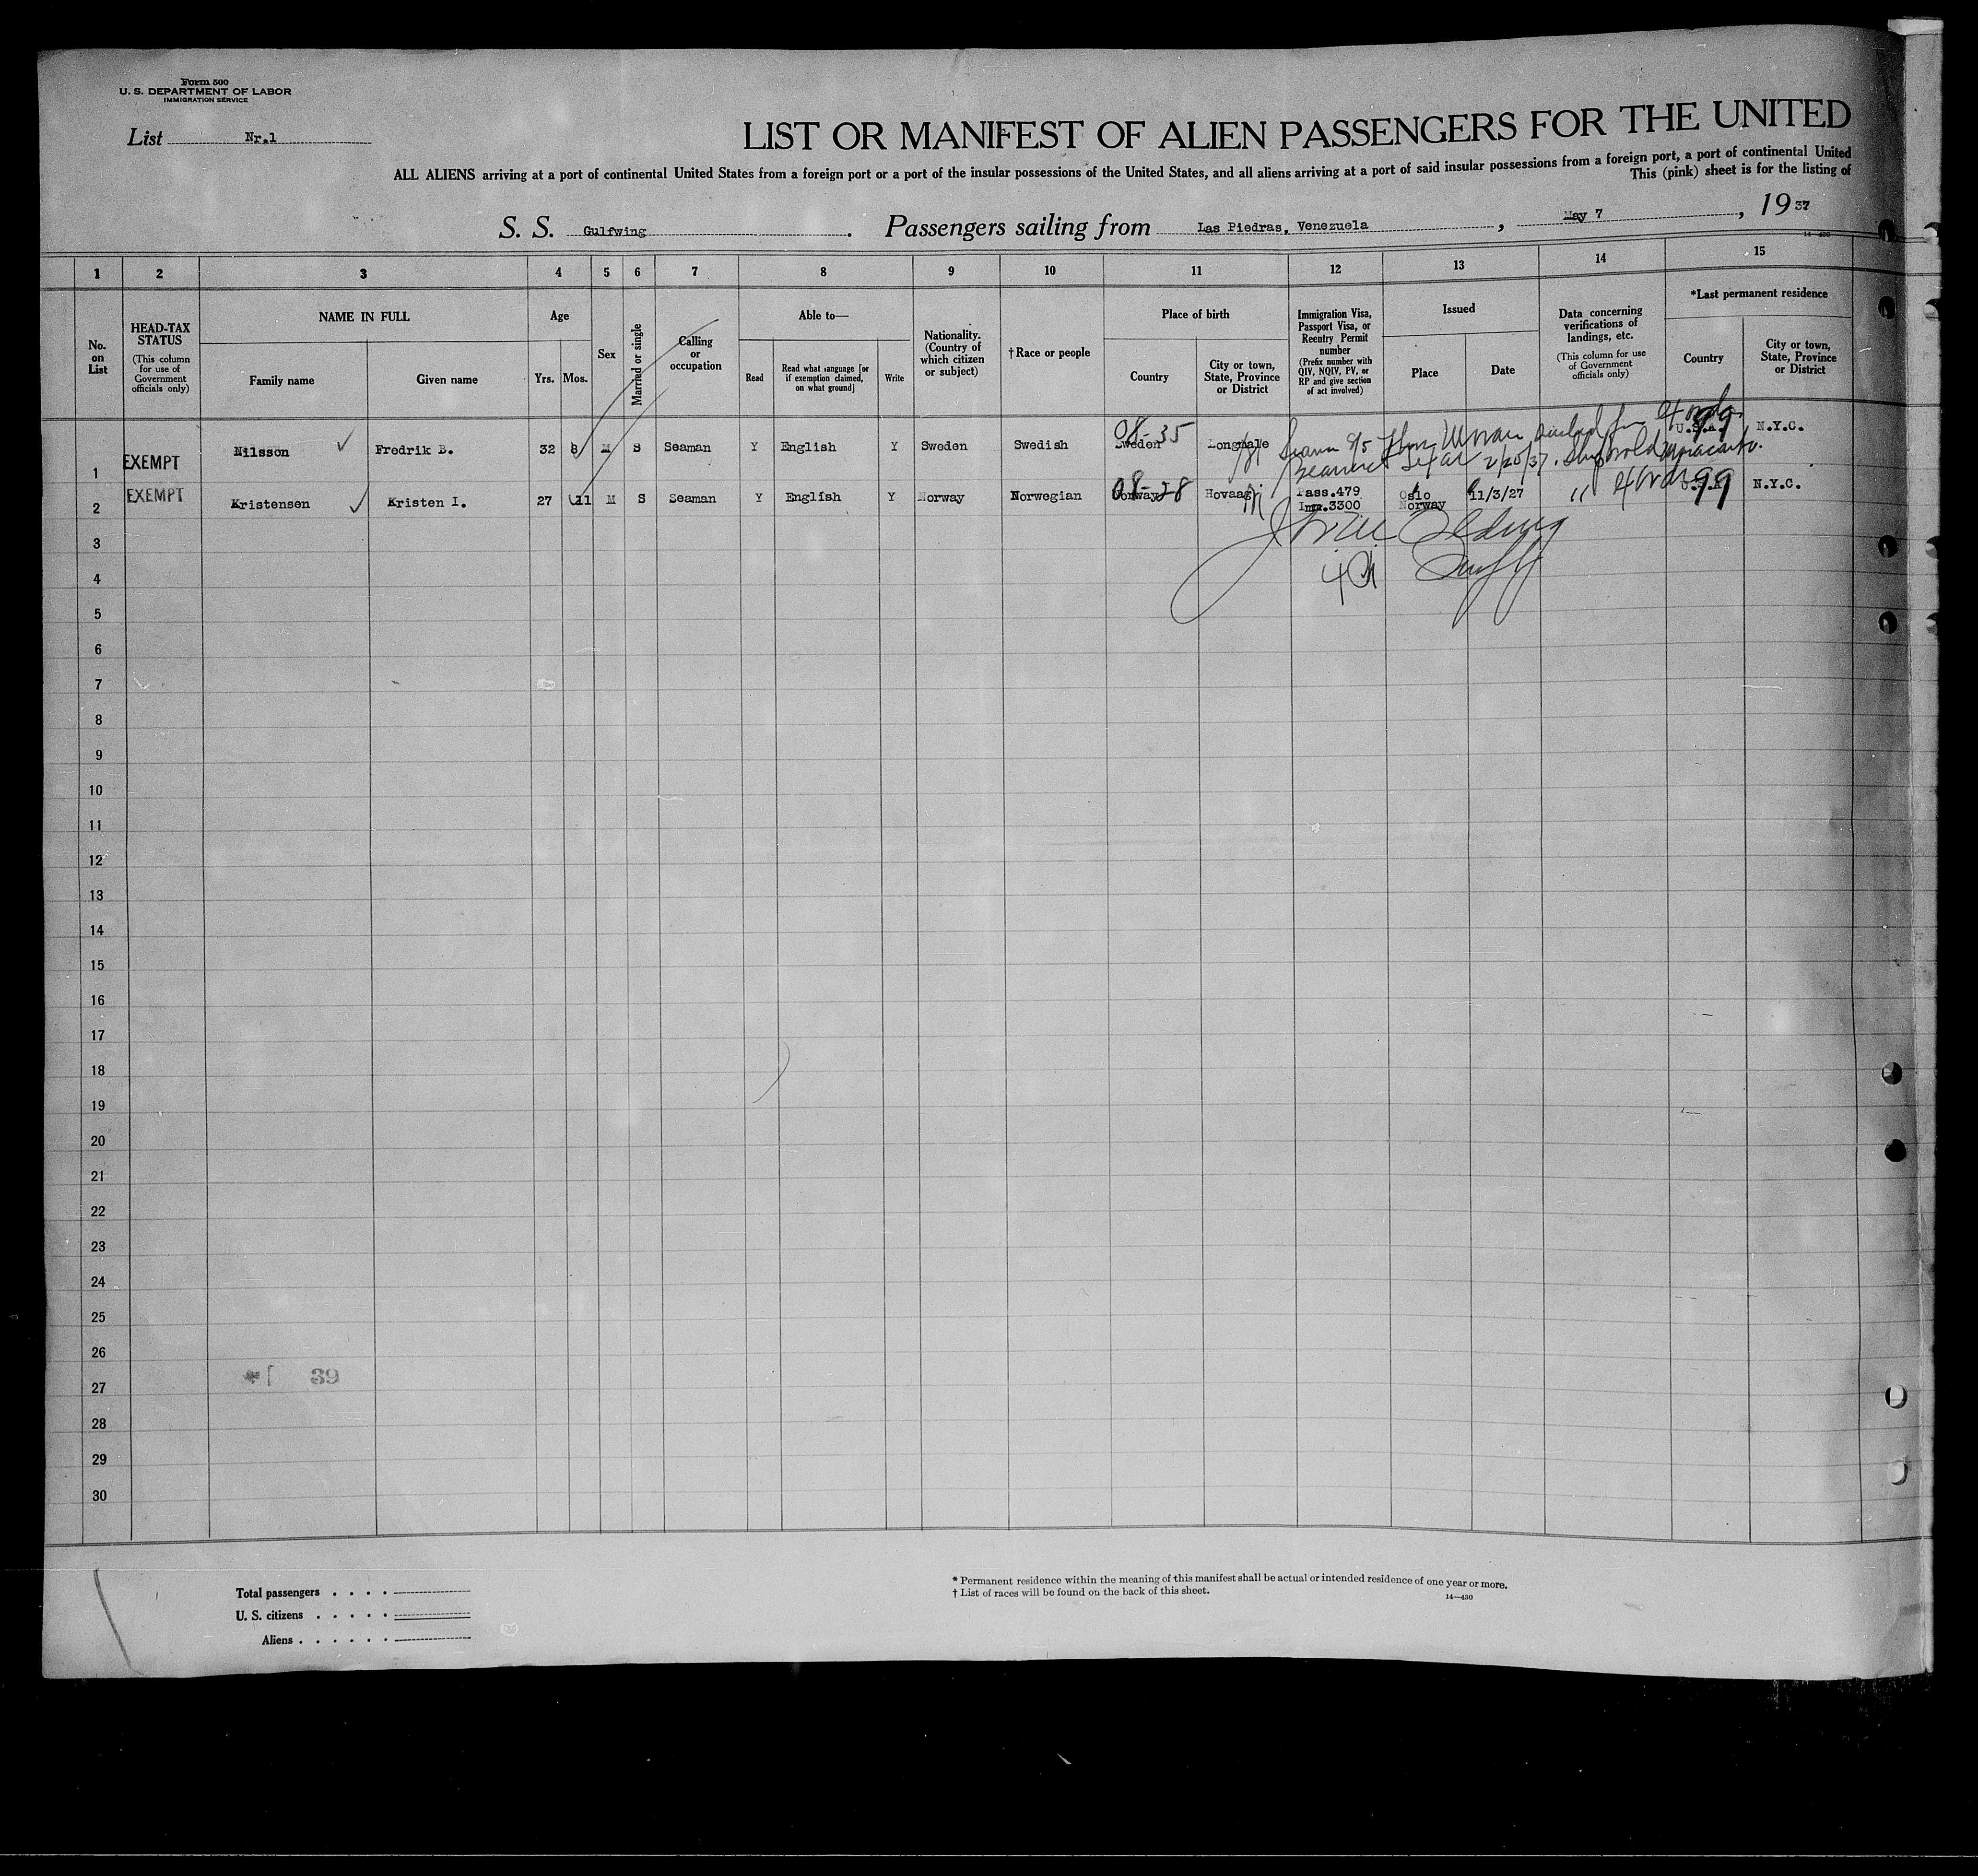 Form 500
U. S. DEPARTMENT OF LABOR
IMMIGRATION SERVICE
List Nr.1
LIST OR MANIFEST OF ALIEN PASSENGERS FOR THE UNITED
ALL ALIENS arriving at a port of continental United States from a foreign port or a port of the insular possessions of the United States, and all aliens arriving at a port of said insular possessions from a foreign port, a port of continental United
This (pink) sheet is for the listing of
S. S. Gulfwing . Passengers sailing from Las Piedras, Venezuela , May 7 , 1937
14—430
1 2 3 4 5 6 7 8 9 10 11 12 13 14 15
No. on List
HEAD-TAX STATUS
(This column for use of Government officials only)
NAME IN FULL
Family name
Given name
Age
Yrs. Mos.
Sex
Married or single
Calling or occupation
Able to—
Read
Read what language [or if exemption claimed, on what ground]
Write
Nationality. (Country of which citizen or subject)
†Race or people
Place of birth
Country
City or town, State, Province or District
Immigration Visa, Passport Visa, or Reentry Permit number
(Prefix number with QIV, NQIV, PV, or RP and give section of act involved)
Issued
Place
Date
Data concerning verifications of landings, etc.
(This column for use of Government officials only)
*Last permanent residence
Country
City or town, State, Province or District
1 EXEMPT Nilsson Fredrik B. 32 8 M S Seaman Y English Y Sweden Swedish 08-35 Sweden U.S.A. 99 N.Y.C.
2 EXEMPT Kristensen Kristen I. 27 11 M S Seaman Y English Y Norway Norwegian 08-28 Norway Hovaag Pass.479 Imm.3300 Oslo Norway 11/3/27 " 99 N.Y.C.
3
4
5
6
7
8
9
10
11
12
13
14
15
16
17
18
19
20
21
22
23
24
25
26
27
28
29
30
39
Total passengers . . . .
U. S. citizens . . . . .
Aliens . . . . . .
* Permanent residence within the meaning of this manifest shall be actual or intended residence of one year or more.
† List of races will be found on the back of this sheet.
14—430